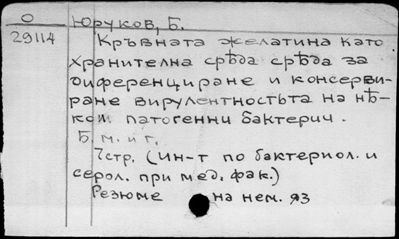 О Юруков, Б.
29114 Кръвната желатина като
хранителна срѣда срѣда за
диференциране и консерви-
ране вирулентностьта на нѣ-
кои патогенни бактерич.
Б. м. и г.
7стр. (ин-т по бактериол. и
серол. при мед. фак.)
Резюме на нем. яз